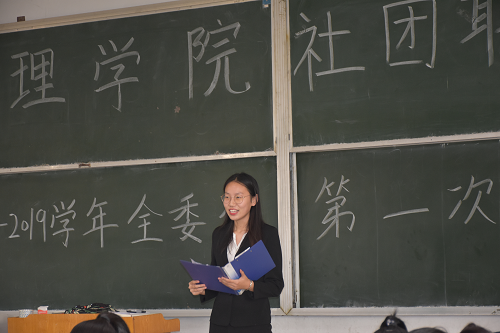 理学院社团联
-2019学年全委 第一次